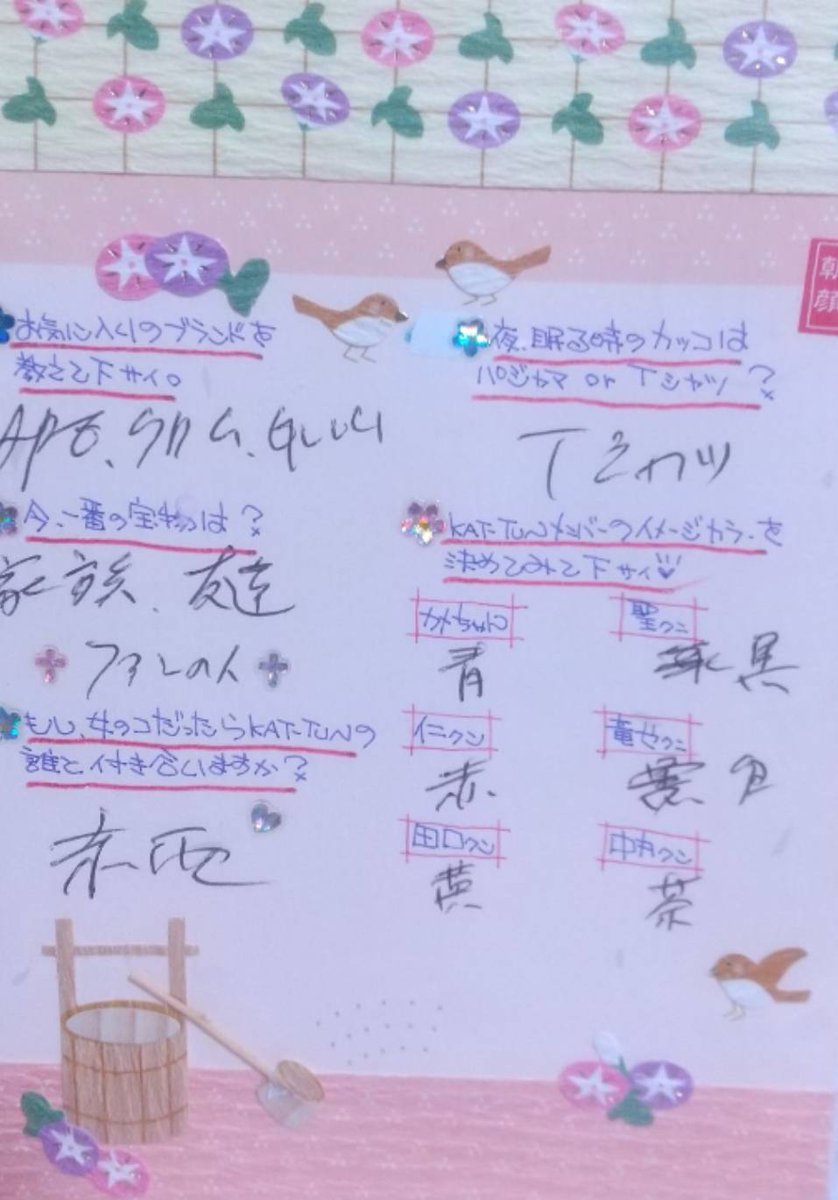 お気に入りのブランドを
教えて下サイ。
今、一番の宝物は?
家族、友達
ファンの人
もし、女のコだったらKAT-TUNの
誰と付き合いますか?
夜、眠る時のカッコは
パジャマ or Tシャツ?
Tシャツ
KAT-TUNメンバーのイメージカラーを
決めてみて下サイ
カメちゃん
青
聖クン
黒
仁クン
赤
竜也クン
田口クン
黄
中丸クン
茶
朝顔